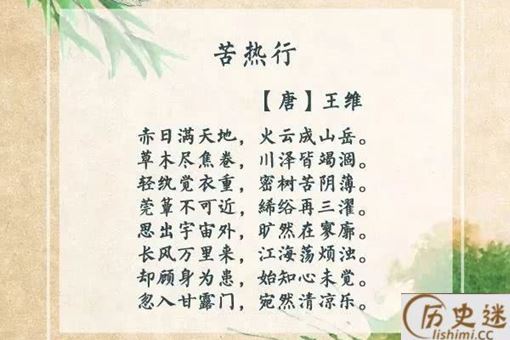 苦热行
【唐】王维
赤日满天地，火云成山岳。
草木尽焦卷，川泽皆竭涸。
轻纨觉衣重，密树苦阴薄。
莞簟不可近，絺绤再三濯。
思出宇宙外，旷然在寥廓。
长风万里来，江海荡烦浊。
却顾身为患，始知心未觉。
忽入甘露门，宛然清凉乐。
历史迷
lishimi.cc